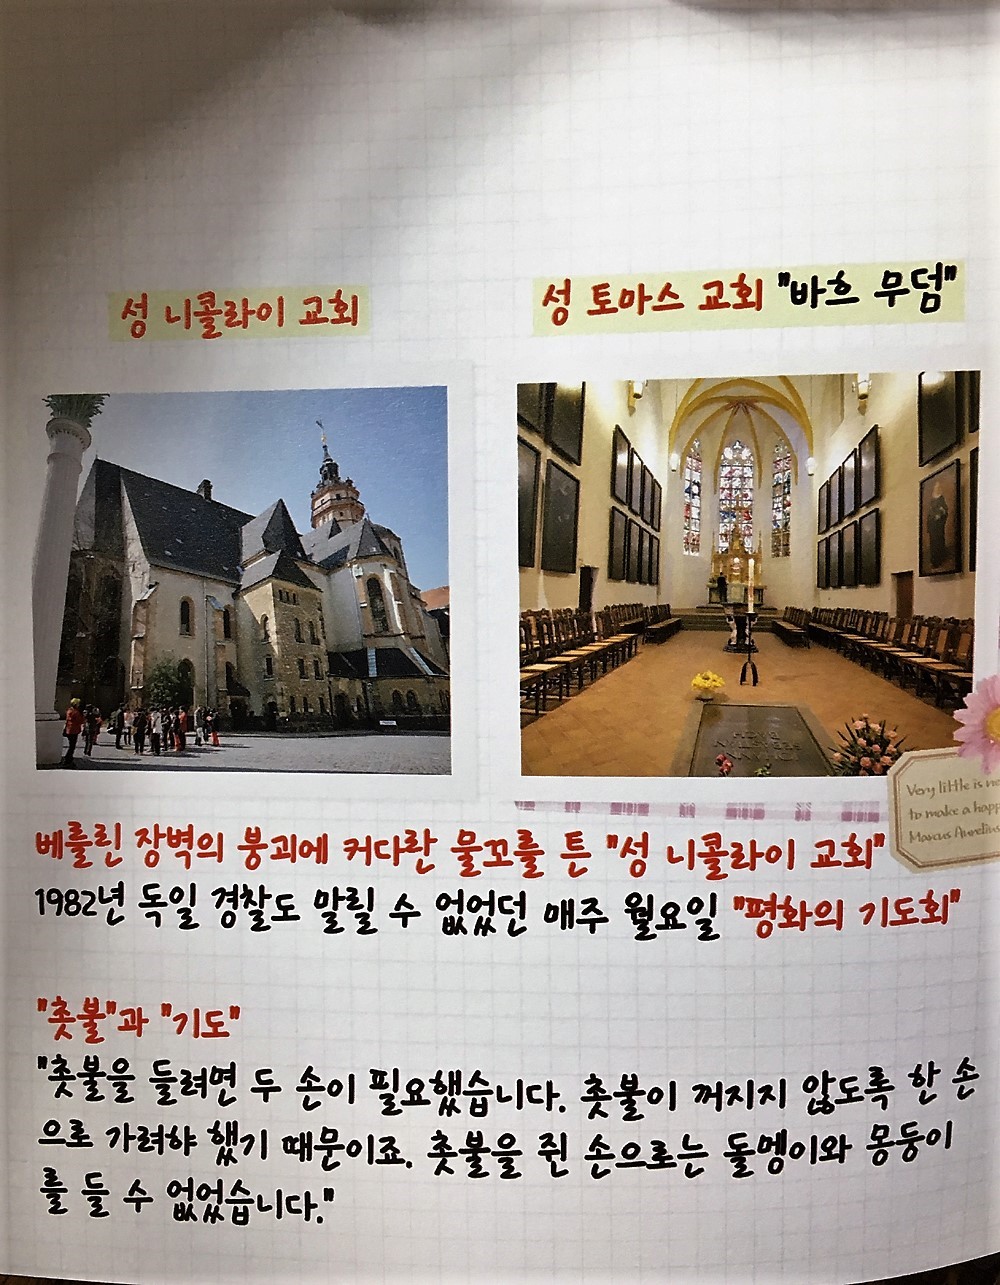 성 니콜라이 교회
성 토마스 교회 "바흐 무덤"
JOHANN
SEBASTIAN
BACH
Very little is
to make a happ
Marcus Aurelius
베를린 장벽의 붕괴에 커다란 물꼬를 튼 "성 니콜라이 교회"
1982년 독일 경찰도 말릴 수 없었던 매주 월요일 "평화의 기도회"
"촛불"과 "기도"
"촛불을 들려면 두 손이 필요했습니다. 촛불이 꺼지지 않도록 한 손
으로 가려햐 했기 때문이죠. 촛불을 쥔 손으로는 돌멩이와 몽둥이
를 들 수 없었습니다."